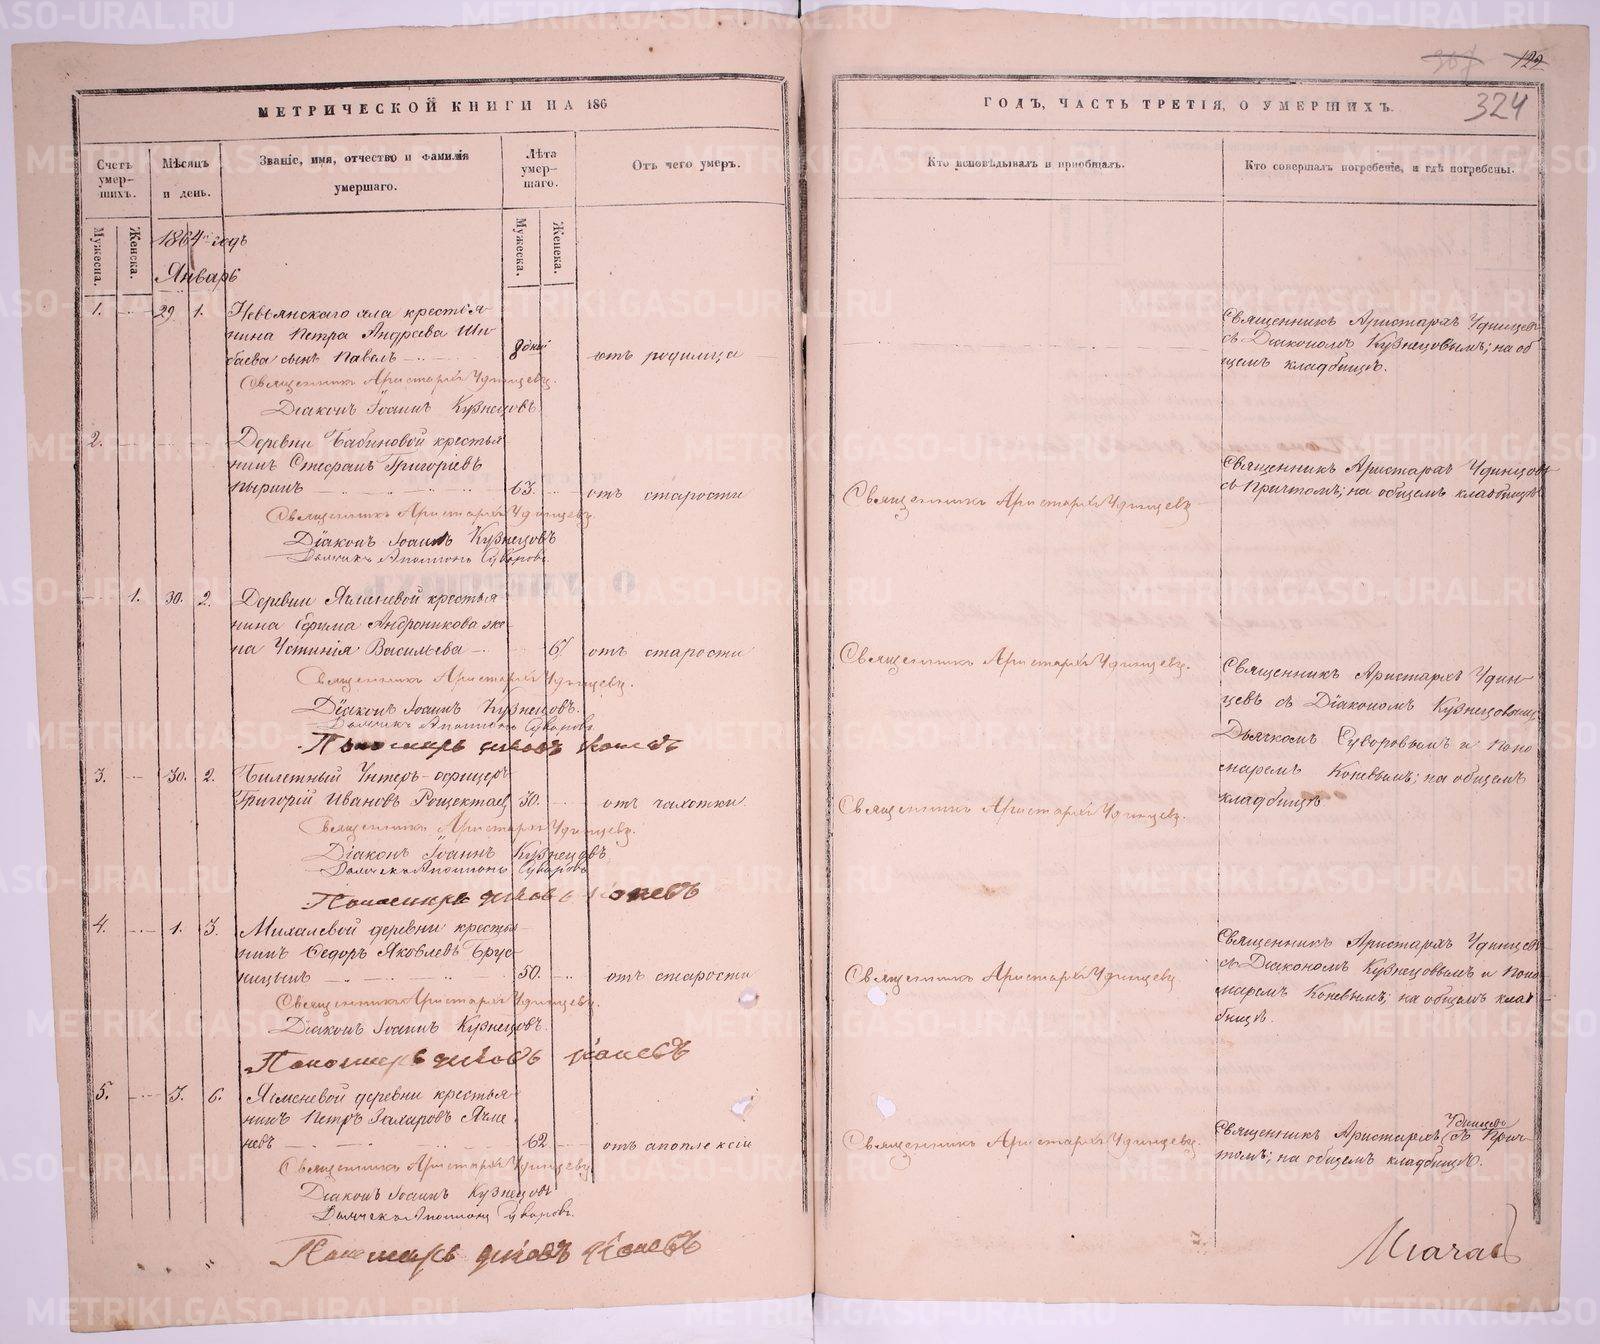 МЕТРИЧЕСКОЙ КНИГИ НА 186
Счетъ умер-шихъ.
Мѣсяцъ и день.
Званіе, имя, отчество и фамилія умершаго.
Лѣта умер-шаго.
Отъ чего умеръ.
Мужеска. Женска.
Мужеска. Женска.
1864 годъ
Январь
1. 29 1. Невьянскаго села крестья-
нина Петра Андреева Ши-
баева сынъ Павелъ 8 дней отъ родимца
Священникъ Аристархъ Удинцевъ.
Діаконъ Іоаннъ Кузнецовъ
2. Деревни Бабиновой крестья
нинъ Стефанъ Григоріевъ
Пыринъ 63. отъ старости
Священникъ Аристархъ Удинцевъ.
Діаконъ Іоаннъ Кузнецовъ
Дьячекъ Аполлонъ Суворовъ.
1. 30. 2. Деревни Ячменевой крестья
нина Ефима Андроникова же-
на Устинія Васильева 67 отъ старости
Священникъ Аристархъ Удинцевъ.
Діаконъ Іоаннъ Кузнецовъ.
Дьячекъ Аполлонъ Суворовъ
Пономарь Коневъ
3. 30. 2. Билетный Унтеръ-офицеръ
Григорій Ивановъ 30. отъ чахотки.
Священникъ Аристархъ Удинцевъ.
Діаконъ Іоаннъ Кузнецовъ
Дьячекъ Аполлонъ Суворовъ
Пономарь Коневъ
4. 1. 3. Михалевой деревни кресть-
нинъ Ѳедоръ Яковлевъ Брус
ницынъ 50. отъ старости
Священникъ Аристархъ Удинцевъ.
Діаконъ Іоаннъ Кузнецовъ.
Пономарь Коневъ
5. 3. 6. Ячменевой деревни крестья-
нинъ Петръ Захаровъ Ячме
невъ 62 отъ апоплексіи
Священникъ Аристархъ Удинцевъ
Діаконъ Іоаннъ Кузнецовъ
Дьячекъ Аполлонъ Суворовъ.
Пономарь Коневъ
129
324
ГОДЪ, ЧАСТЬ ТРЕТІЯ, О УМЕРШИХЪ.
Кто исповѣдывалъ и пріобщалъ.
Кто совершалъ погребеніе, и гдѣ погребены.
Священникъ Аристархъ Удинцевъ
съ Діакономъ Кузнецовымъ; на об
щемъ кладбищѣ.
Священникъ Аристархъ Удинцевъ
Священникъ Аристархъ Удинцевъ
съ Причтомъ; на общемъ кладбищѣ
Священникъ Аристархъ Удинцевъ.
Священникъ Аристархъ Удин-
цевъ съ Діакономъ Кузнецовымъ,
Дьячкомъ Суворовымъ и Поно
маремъ Коневымъ; на общемъ
кладбищѣ
Священникъ Аристархъ Удинцевъ.
Священникъ Аристархъ Удинцевъ
Священникъ Аристархъ Удинцевъ
съ Діакономъ Кузнецовымъ и Поно
маремъ Коневымъ; на общемъ клад
бищѣ.
Священникъ Аристархъ Удинцевъ.
Священникъ Аристархъ Удинцевъ съ Прич-
томъ; на общемъ кладбищѣ.
METRIKI.GASO-URAL.RU